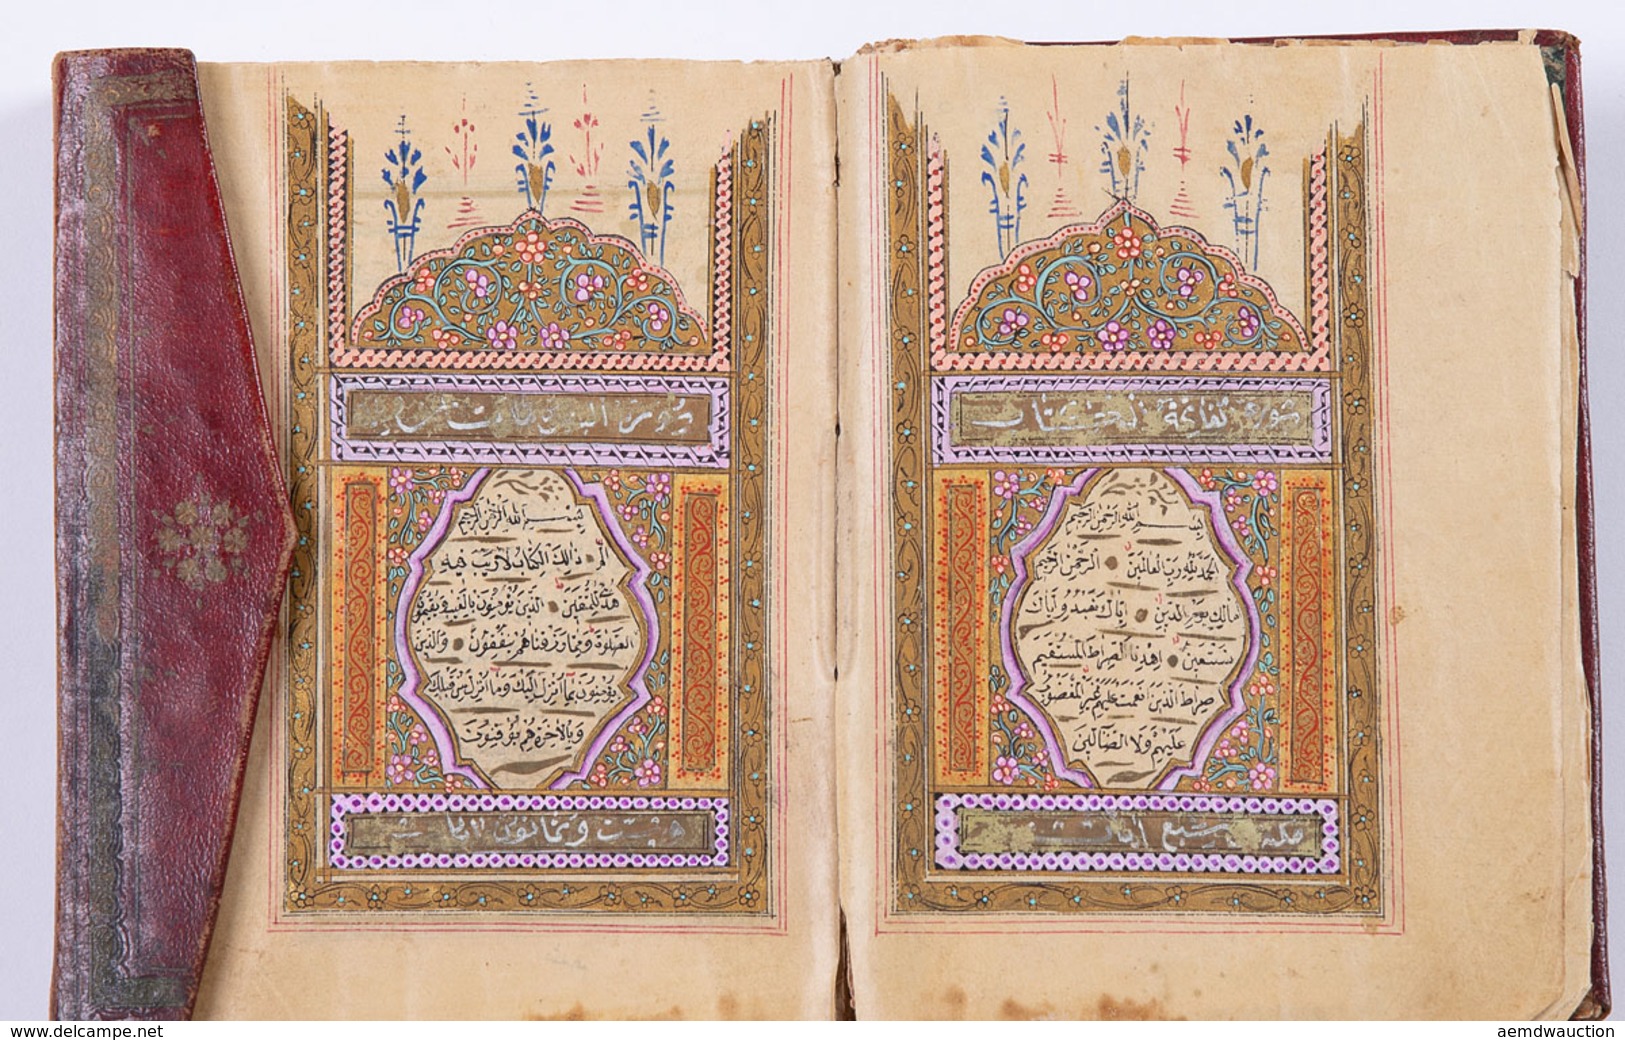 سورة فاتحة الكتاب
بسم الله الرحمن الرحيم
الحمد لله رب العالمين الرحمن الرحيم
مالك يوم الدين اياك نعبد واياك
نستعين اهدنا الصراط المستقيم
صراط الذين انعمت عليهم غير المغضوب
عليهم ولا الضآلين
مكية سبع آيات
سورة البقرة
بسم الله الرحمن الرحيم
الم ذالك الكتاب لا ريب فيه
هدى للمتقين الذين يؤمنون بالغيب ويقيمون
الصلوة ومما رزقناهم ينفقون والذين
يؤمنون بما انزل اليك وما انزل من قبلك
وبالاخرة هم يوقنون
وثمانون آيات
www.delcampe.net
aemdwauction